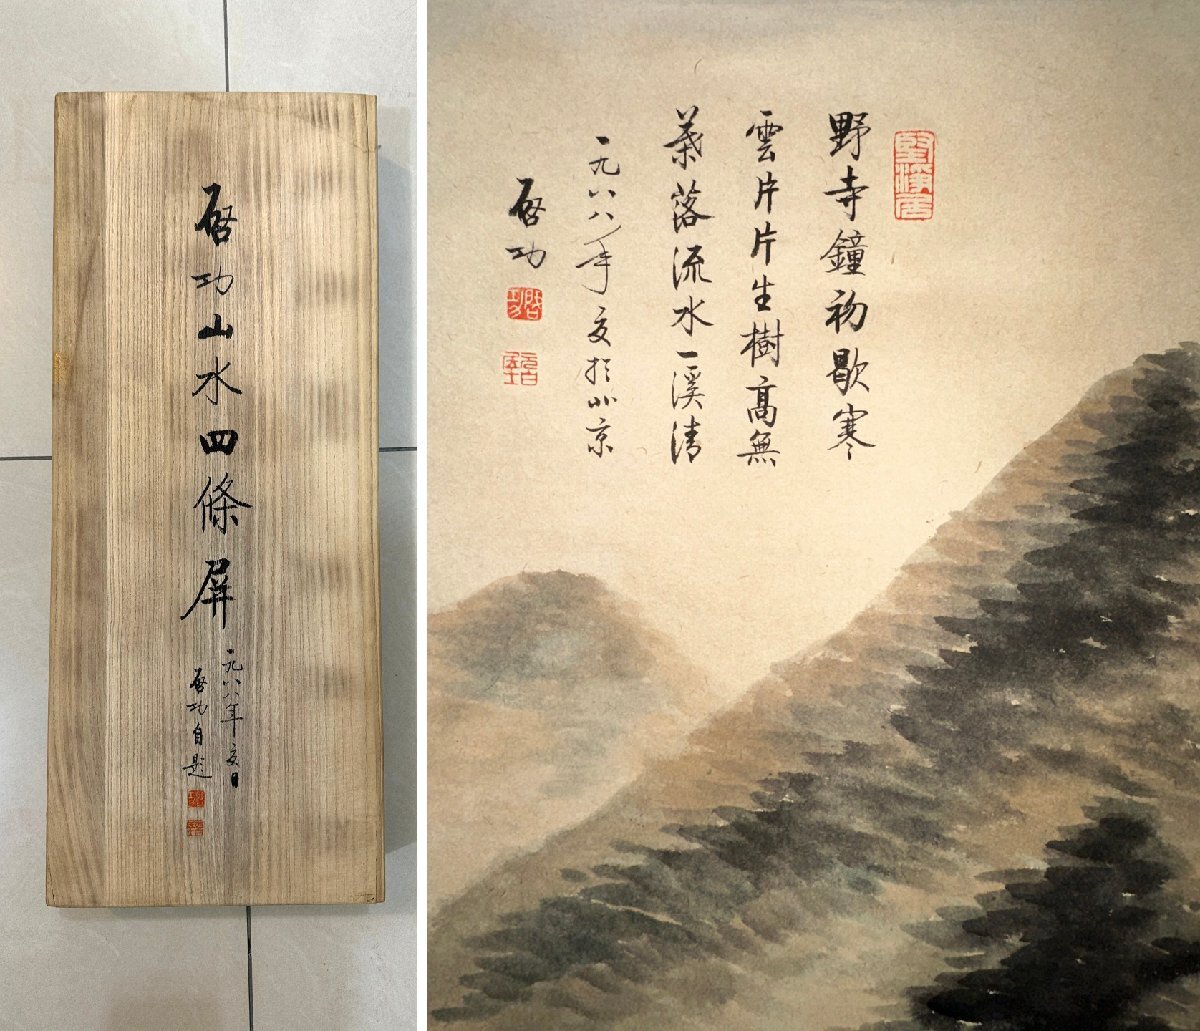 啓功山水四條屏
一九八八年夏日
啓功自題
野寺鐘初歇寒
雲片片生樹高無
葉落流水一溪清
一九八八年夏於北京
啓功
啓功